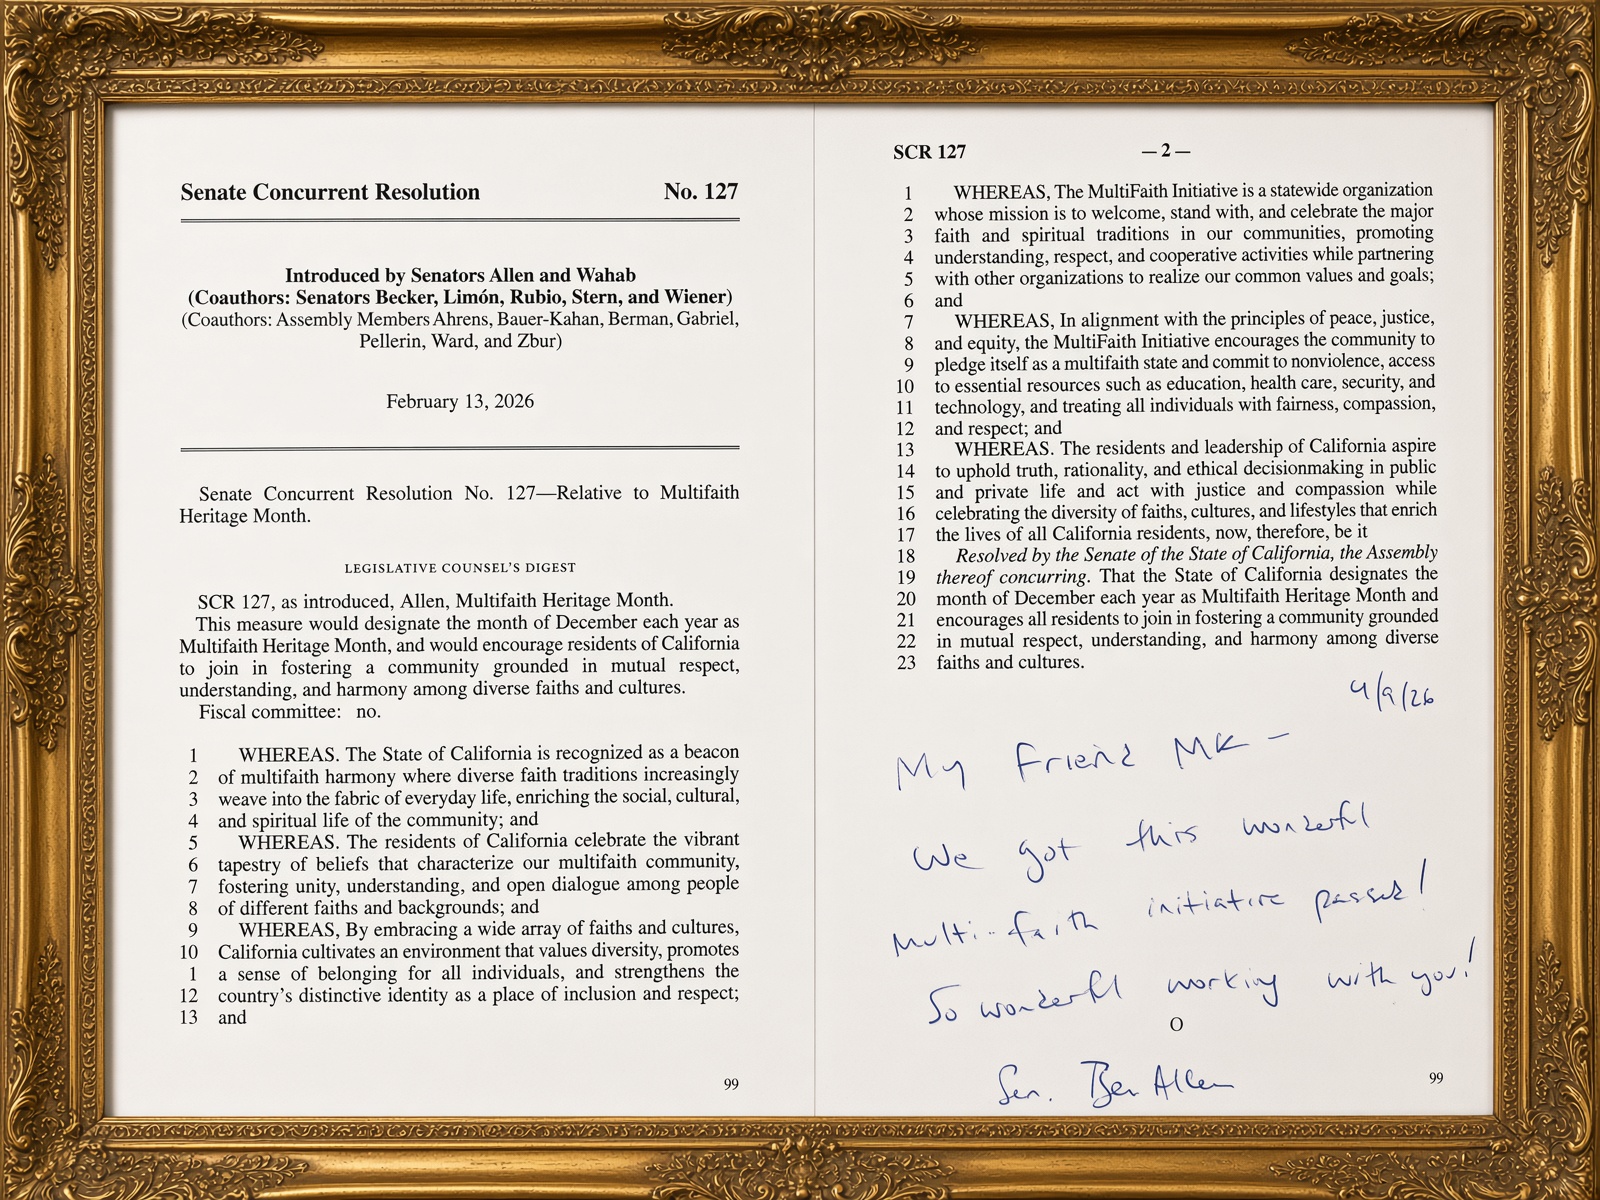 Senate Concurrent Resolution No. 127
Introduced by Senators Allen and Wahab
(Coauthors: Senators Becker, Limón, Rubio, Stern, and Wiener)
(Coauthors: Assembly Members Ahrens, Bauer-Kahan, Berman, Gabriel,
Pellerin, Ward, and Zbur)
February 13, 2026
Senate Concurrent Resolution No. 127—Relative to Multifaith
Heritage Month.
LEGISLATIVE COUNSEL'S DIGEST
SCR 127, as introduced, Allen, Multifaith Heritage Month.
This measure would designate the month of December each year as
Multifaith Heritage Month, and would encourage residents of California
to join in fostering a community grounded in mutual respect,
understanding, and harmony among diverse faiths and cultures.
Fiscal committee: no.
1 WHEREAS. The State of California is recognized as a beacon
2 of multifaith harmony where diverse faith traditions increasingly
3 weave into the fabric of everyday life, enriching the social, cultural,
4 and spiritual life of the community; and
5 WHEREAS. The residents of California celebrate the vibrant
6 tapestry of beliefs that characterize our multifaith community,
7 fostering unity, understanding, and open dialogue among people
8 of different faiths and backgrounds; and
9 WHEREAS, By embracing a wide array of faiths and cultures,
10 California cultivates an environment that values diversity, promotes
1 a sense of belonging for all individuals, and strengthens the
12 country's distinctive identity as a place of inclusion and respect;
13 and
99
SCR 127 — 2 —
1 WHEREAS, The MultiFaith Initiative is a statewide organization
2 whose mission is to welcome, stand with, and celebrate the major
3 faith and spiritual traditions in our communities, promoting
4 understanding, respect, and cooperative activities while partnering
5 with other organizations to realize our common values and goals;
6 and
7 WHEREAS, In alignment with the principles of peace, justice,
8 and equity, the MultiFaith Initiative encourages the community to
9 pledge itself as a multifaith state and commit to nonviolence, access
10 to essential resources such as education, health care, security, and
11 technology, and treating all individuals with fairness, compassion,
12 and respect; and
13 WHEREAS. The residents and leadership of California aspire
14 to uphold truth, rationality, and ethical decisionmaking in public
15 and private life and act with justice and compassion while
16 celebrating the diversity of faiths, cultures, and lifestyles that enrich
17 the lives of all California residents, now, therefore, be it
18 Resolved by the Senate of the State of California, the Assembly
19 thereof concurring. That the State of California designates the
20 month of December each year as Multifaith Heritage Month and
21 encourages all residents to join in fostering a community grounded
22 in mutual respect, understanding, and harmony among diverse
23 faiths and cultures.
4/9/26
My Friend MK –
We got this wonderful
Multi-faith initiative passed!
So wonderful working with you!
O
Sen. Ben Allen
99